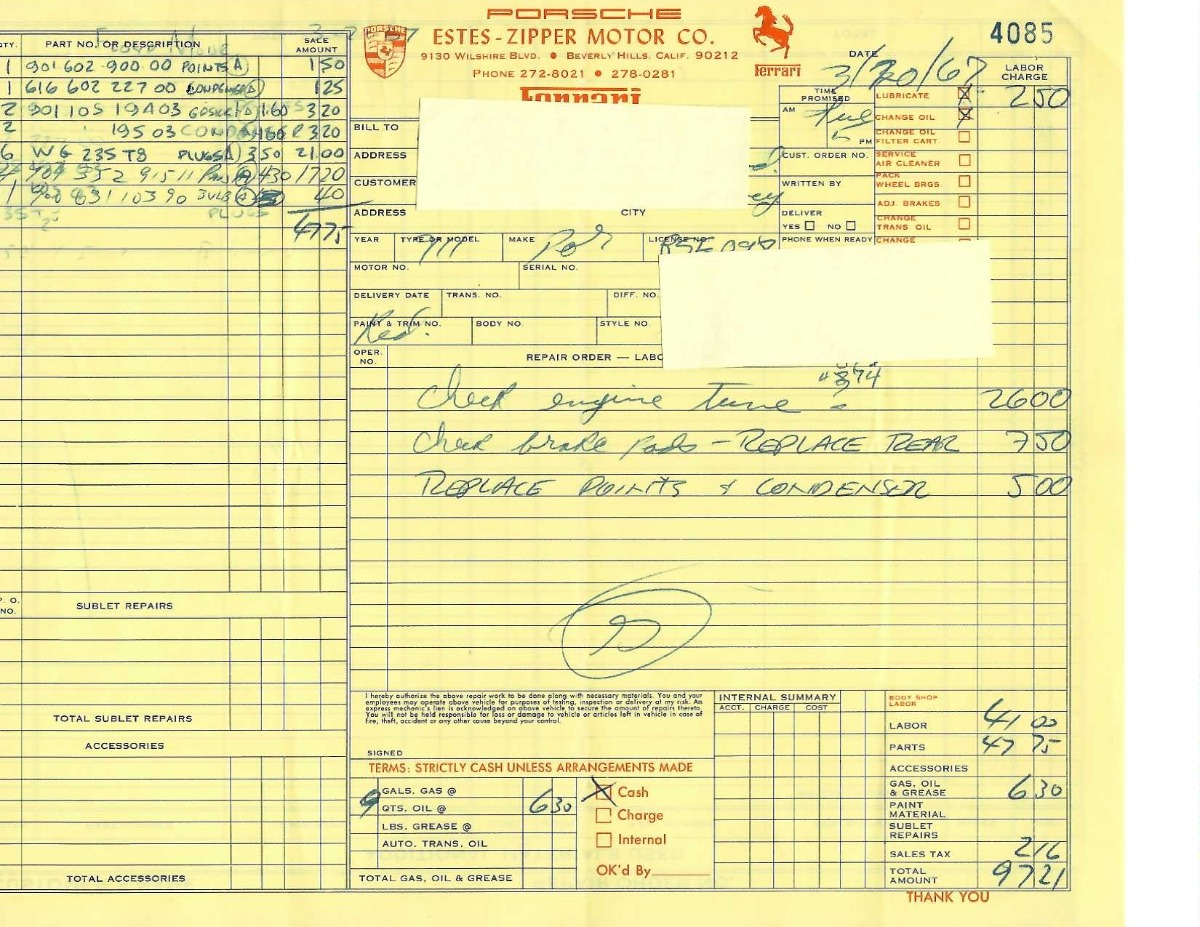 PORSCHE
ESTES-ZIPPER MOTOR CO.
9130 WILSHIRE BLVD. • BEVERLY HILLS, CALIF. 90212
PHONE 272-8021 • 278-0281
Ferrari
PORSCHE
Ferrari
4085
DATE 3/20/67
QTY. PART NO. OR DESCRIPTION SALE AMOUNT
1 901 602-900 00 POINTS A 1 50
1 616 602 227 00 1 25
2 901 105 194 03 1.60 3 20
2 195 03 3 20
6 WG 235 T8 PLUGS A 3 50 21.00
352 915 11 A 4 30 1720
1 900 631 103 90 BULB A 40
47 75
P. O. NO. SUBLET REPAIRS
TOTAL SUBLET REPAIRS
ACCESSORIES
TOTAL ACCESSORIES
BILL TO
ADDRESS
CUSTOMER
ADDRESS CITY
TIME PROMISED
AM
5 PM
CUST. ORDER NO.
WRITTEN BY
DELIVER
YES NO
PHONE WHEN READY
LABOR CHARGE
LUBRICATE X 2 50
CHANGE OIL X
CHANGE OIL FILTER CART.
SERVICE AIR CLEANER
PACK WHEEL BRGS.
ADJ. BRAKES
CHANGE TRANS OIL
CHANGE
YEAR TYPE OR MODEL 911 MAKE Por LICENSE NO.
MOTOR NO. SERIAL NO.
DELIVERY DATE TRANS. NO. DIFF. NO.
PAINT & TRIM NO. Red. BODY NO STYLE NO.
OPER. NO. REPAIR ORDER — LABO
Check engine tune 26 00
Check brake pads - REPLACE REAR 7 50
REPLACE POINTS & CONDENSER 5 00
I hereby authorize the above repair work to be done along with necessary materials. You and your
employees may operate above vehicle for purposes of testing, inspection or delivery at my risk. An
express mechanic's lien is acknowledged on above vehicle to secure the amount of repairs thereto.
You will not be held responsible for loss or damage to vehicle or articles left in vehicle in case of
fire, theft, accident or any other cause beyond your control.
SIGNED
TERMS: STRICTLY CASH UNLESS ARRANGEMENTS MADE
GALS. GAS @
9 QTS. OIL @ 6 30
LBS. GREASE @
AUTO. TRANS. OIL
TOTAL GAS, OIL & GREASE
X Cash
Charge
Internal
OK'd By
INTERNAL SUMMARY
ACCT. CHARGE COST
BODY SHOP LABOR
LABOR 41 00
PARTS 47 75
ACCESSORIES
GAS, OIL & GREASE 6 30
PAINT MATERIAL
SUBLET REPAIRS
SALES TAX 2 16
TOTAL AMOUNT 97 21
THANK YOU